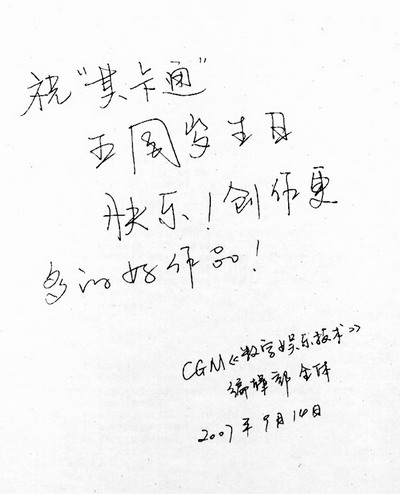 祝“其卡通”
五周岁生日
快乐！创作更
多的好作品！
CGM《数字娱乐技术》
编辑部全体
2007年9月14日